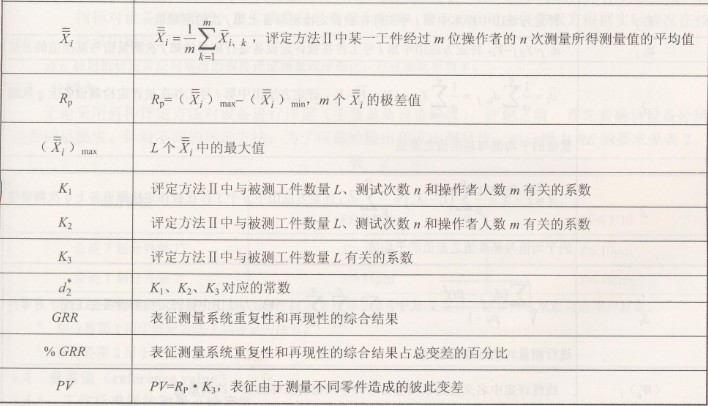 X̿ᵢ X̿ᵢ = 1/m ∑ₖ₌₁ᵐ X̄ᵢ, ₖ，评定方法Ⅱ中某一工件经过 m 位操作者的 n 次测量所得测量值的平均值
Rₚ Rₚ=（X̿ᵢ）max−（X̿ᵢ）min，m 个 X̿ᵢ 的极差值
（X̿ᵢ）max L 个 X̿ᵢ 中的最大值
K₁ 评定方法Ⅱ中与被测工件数量 L、测试次数 n 和操作者人数 m 有关的系数
K₂ 评定方法Ⅱ中与被测工件数量 L、测试次数 n 和操作者人数 m 有关的系数
K₃ 评定方法Ⅱ中与被测工件数量 L 有关的系数
d₂* K₁、K₂、K₃ 对应的常数
GRR 表征测量系统重复性和再现性的综合结果
% GRR 表征测量系统重复性和再现性的综合结果占总变差的百分比
PV PV=R_P·K₃，表征由于测量不同零件造成的彼此变差